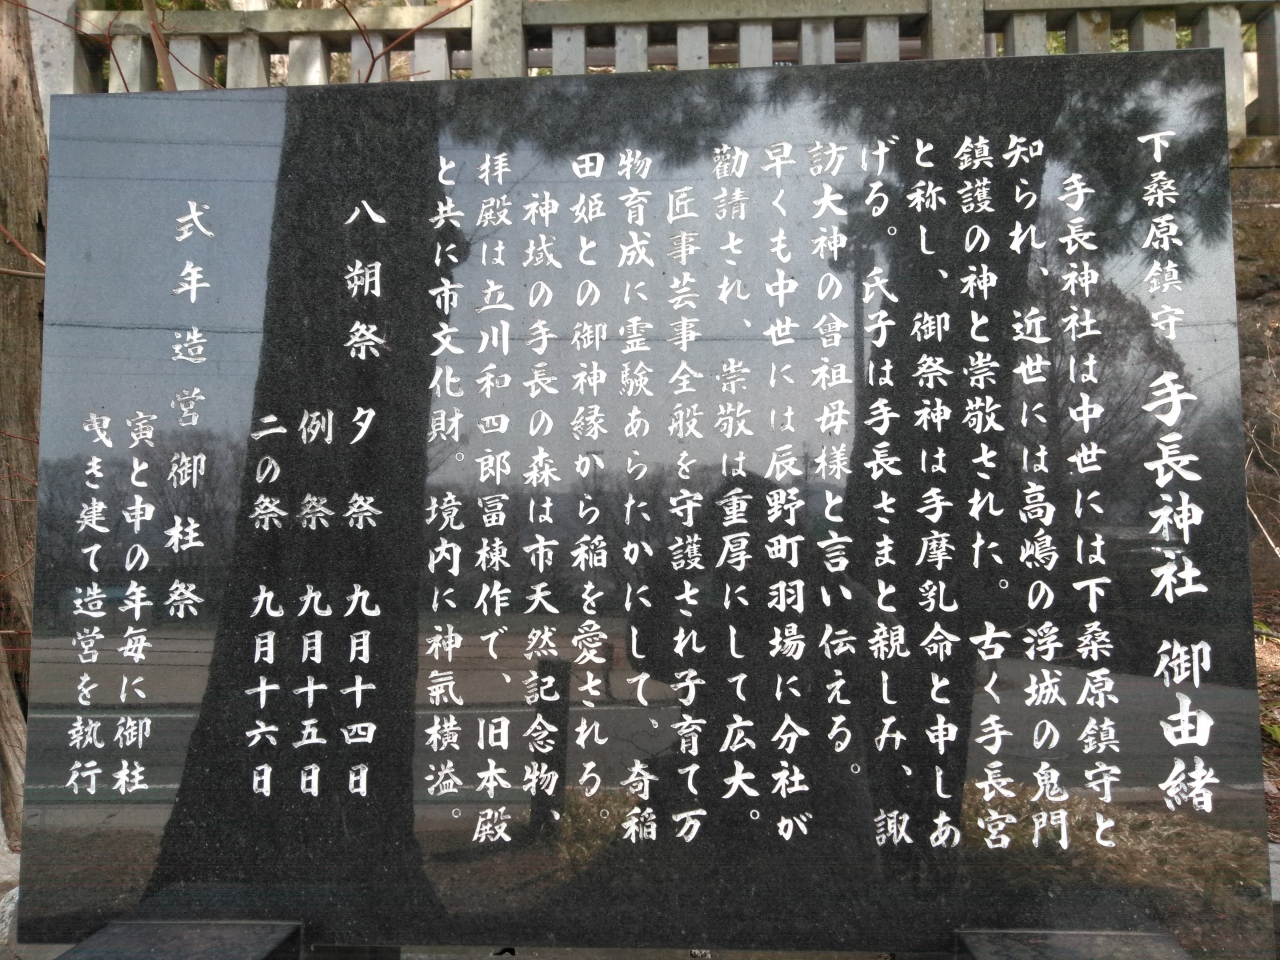 下桑原鎮守 手長神社 御由緒
手長神社は中世には下桑原鎮守と
知られ、近世には高嶋の浮城の鬼門
鎮護の神と崇敬された。古く手長宮
と称し、御祭神は手摩乳命と申しあ
げる。氏子は手長さまと親しみ、諏
訪大神の曾祖母様と言い伝える。
早くも中世には辰野町羽場に分社が
勸請され、崇敬は重厚にして広大。
匠事芸事全般を守護され子育て万
物育成に霊験あらたかにして、奇稲
田姫との御神縁から稲を愛される。
神域の手長の森は市天然記念物、
拝殿は立川和四郎冨棟作で、旧本殿
と共に市文化財。境内に神氣横溢。
八朔祭 夕祭 九月十四日
例祭 九月十五日
二の祭 九月十六日
式年造営御柱祭
寅と申の年毎に御柱
曳き建て造営を執行